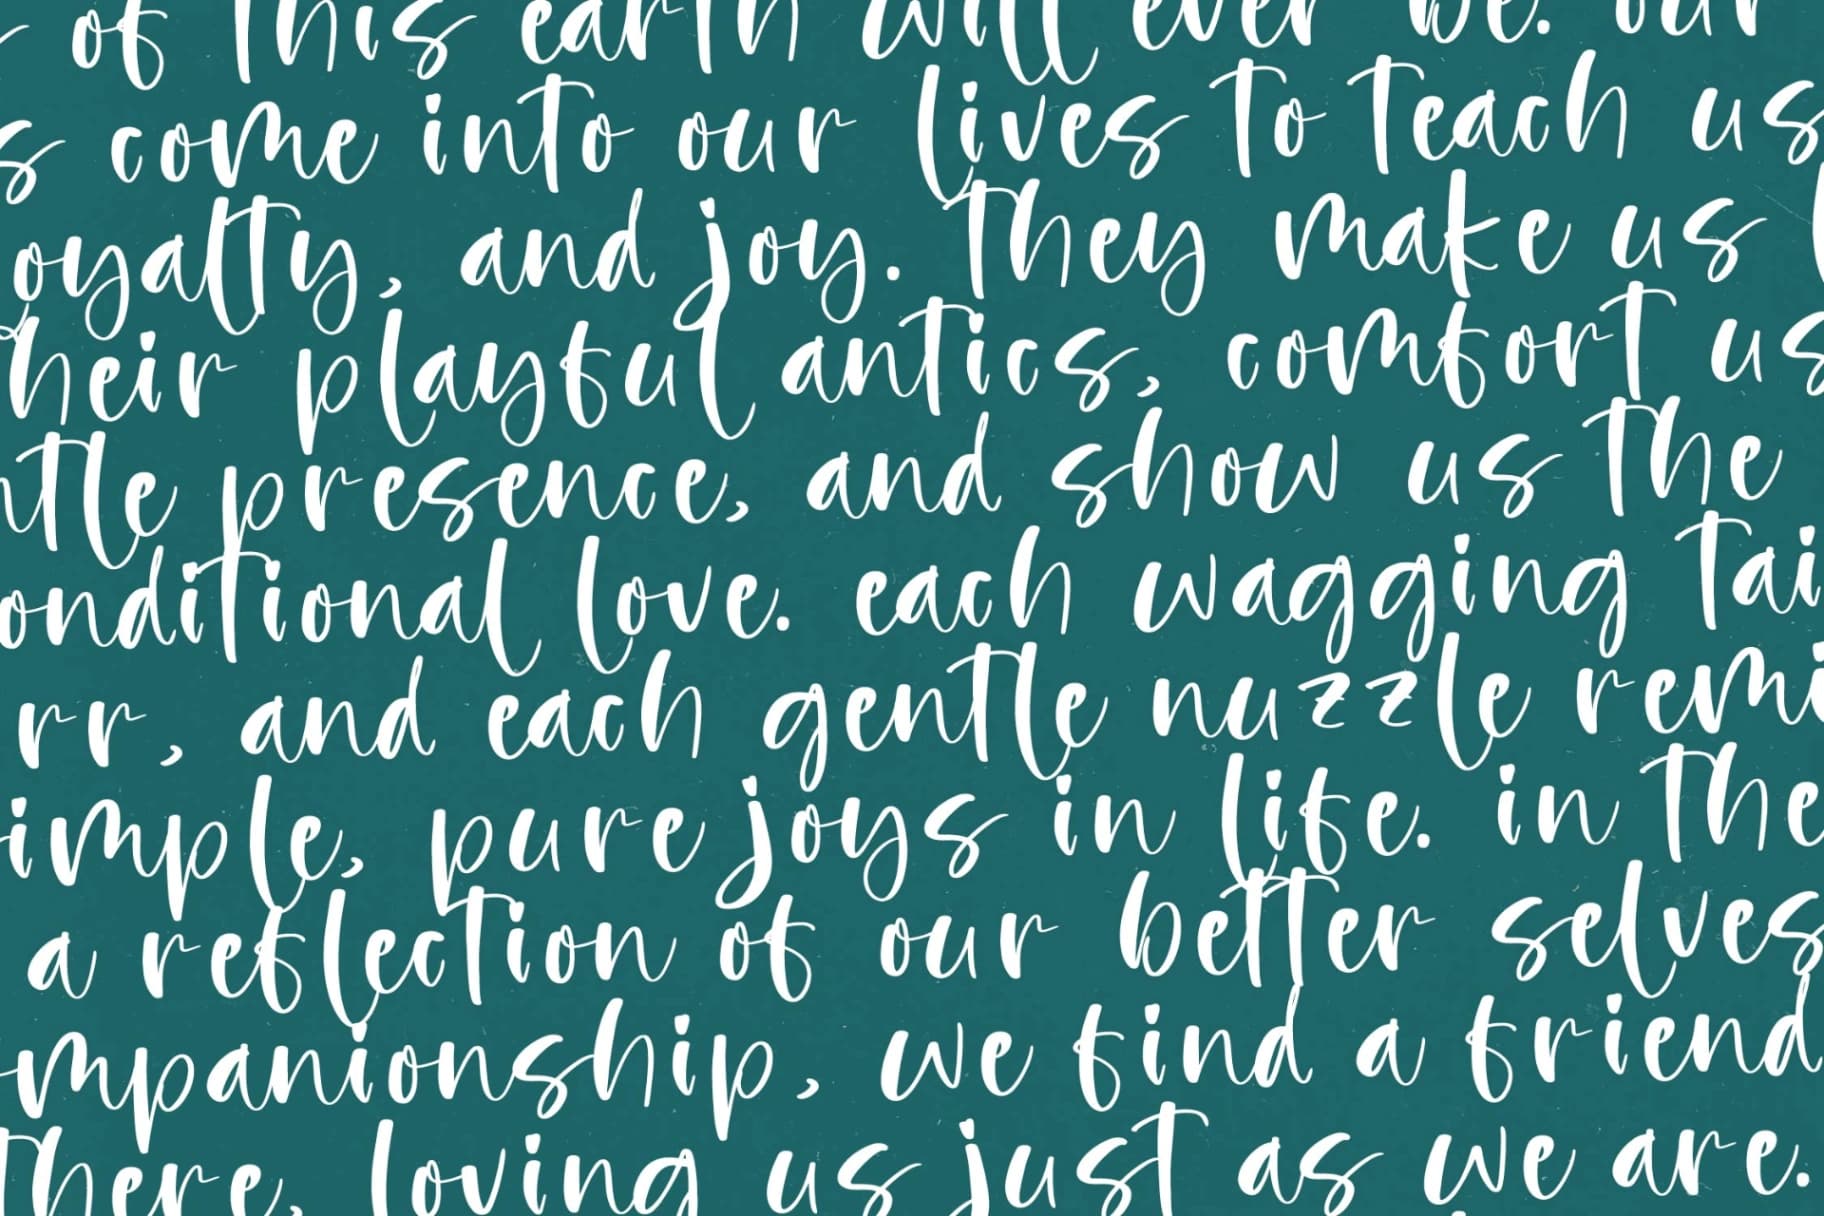 of this earth will ever be. our
s come into our lives to teach us
oyalty, and joy. they make us l
heir playful antics, comfort us
ntle presence, and show us the
onditional love. each wagging tai
rr, and each gentle nuzzle remi
imple, pure joys in life. in the
a reflection of our better selves
mpanionship, we find a friend
there, loving us just as we are.